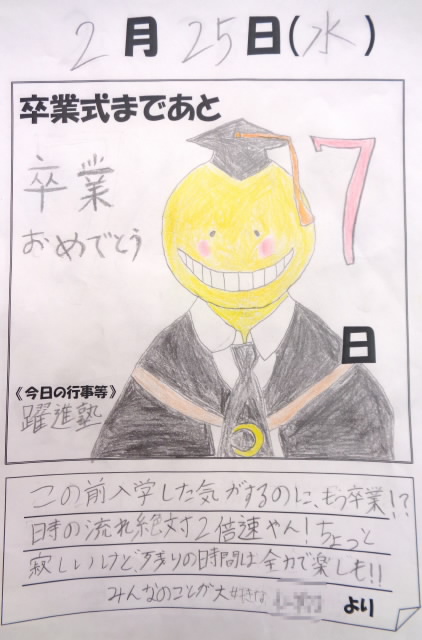 2月25日(水)
卒業式まであと
7
卒業
おめでとう
日
《今日の行事等》
躍進塾
この前入学した気がするのに、もう卒業!?
日時の流れ絶対2倍速やん!ちょっと
寂しいけど、残りの日時間は全力で楽しも!!
みんなのことが大好きな
より